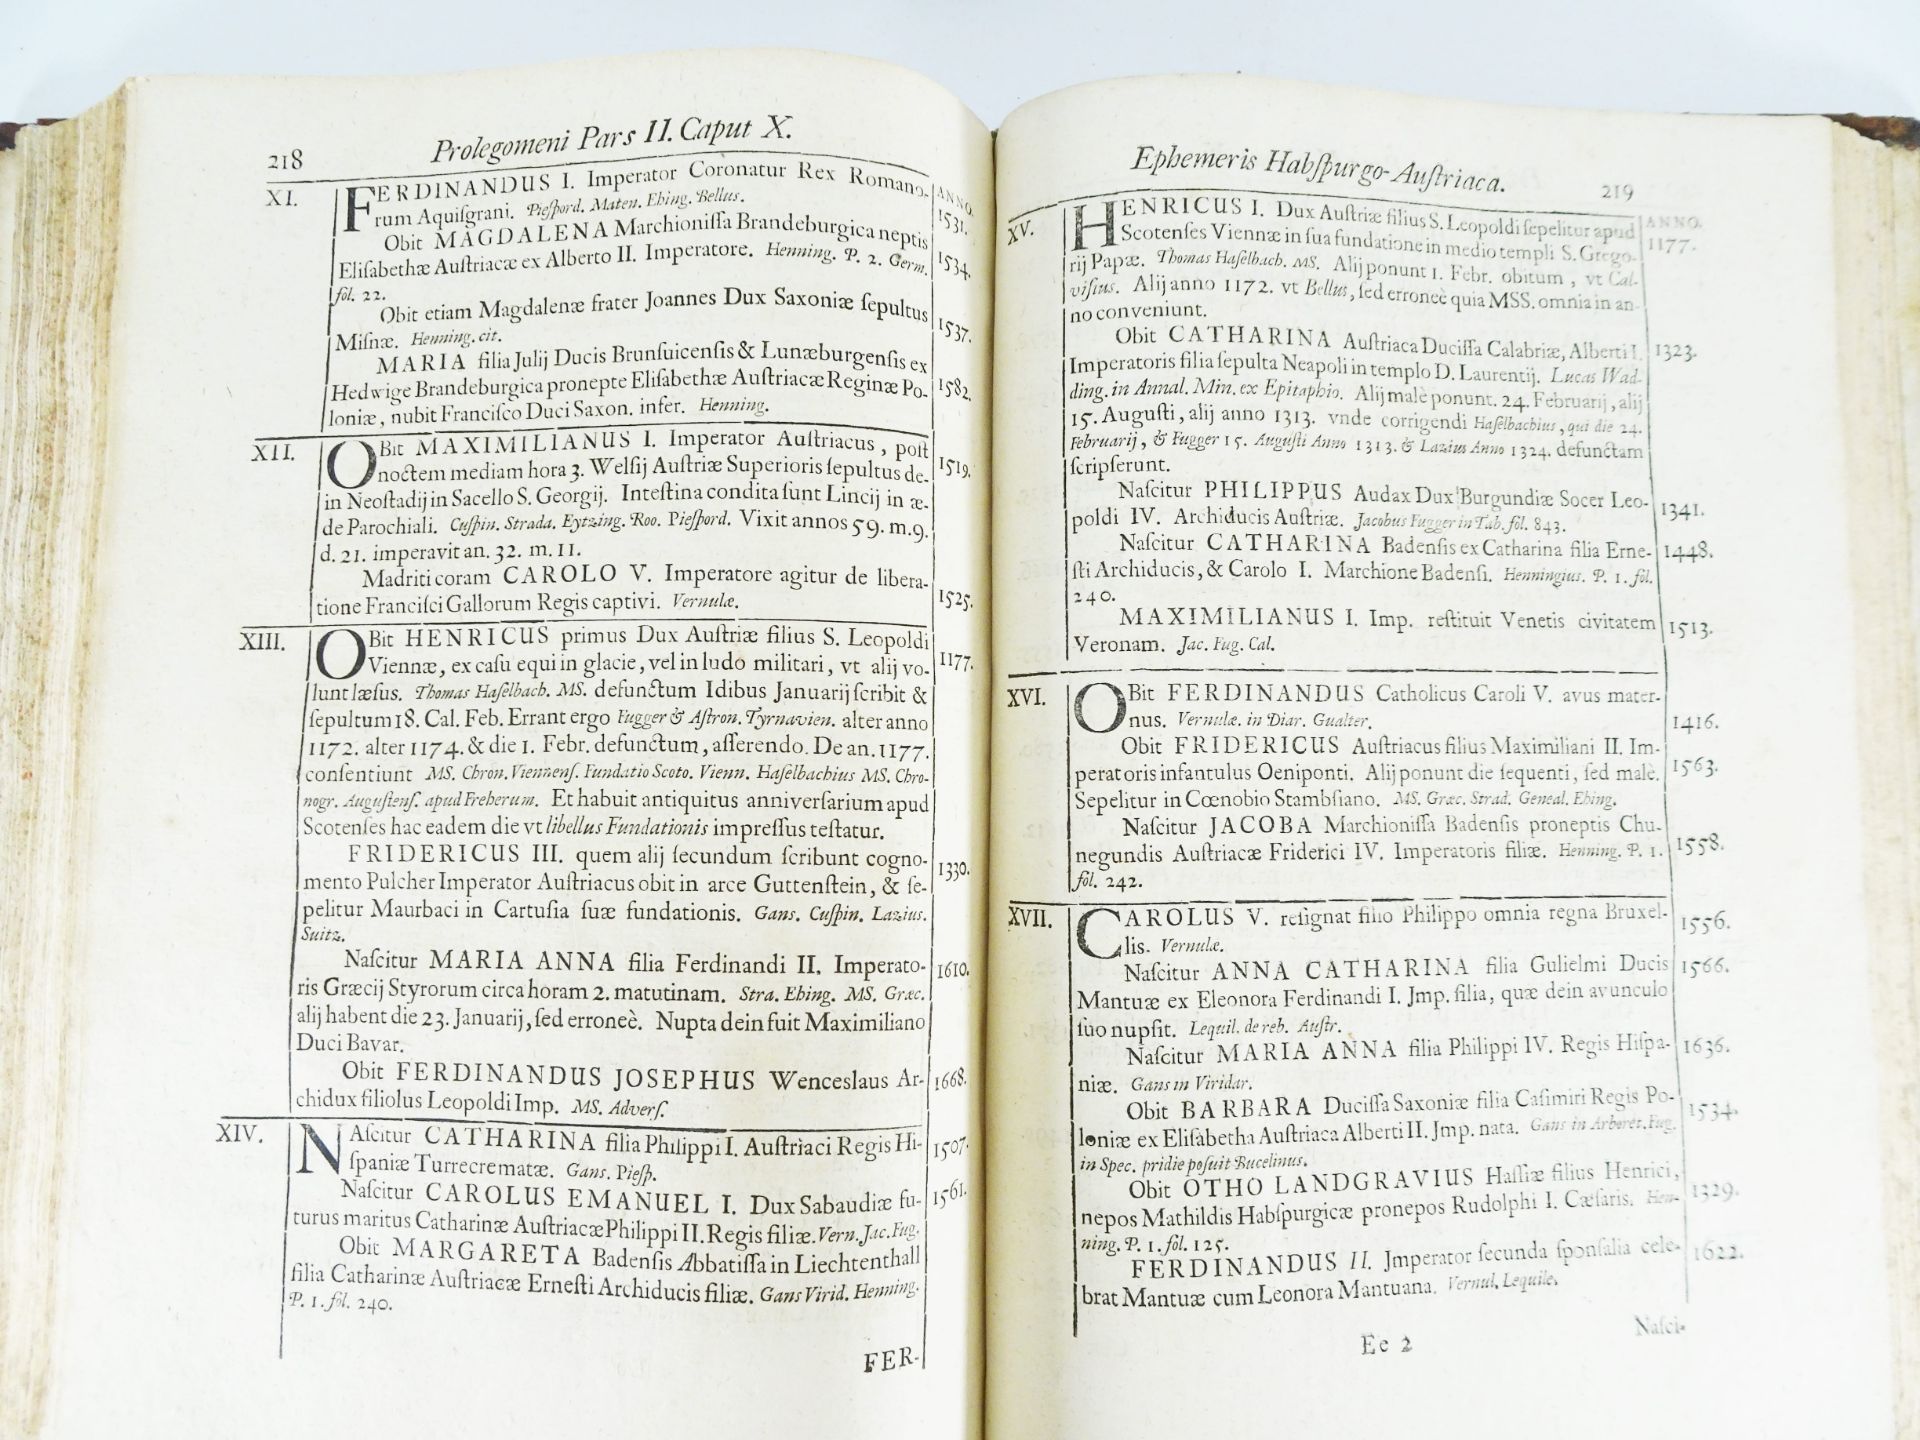 218 Prolegomeni Pars II. Caput X.
ANNO.
XI. FERDINANDUS I. Imperator Coronatur Rex Romano- 1531.
rum Aquiſgrani. Pieſpord. Maten. Ebing. Bellus.
Obit MAGDALENA Marchioniſſa Brandeburgica neptis 1534.
Eliſabethæ Auſtriacæ ex Alberto II. Imperatore. Henning. P. 2. Germ.
fol. 22.
Obit etiam Magdalenæ frater Joannes Dux Saxoniæ ſepultus 1537.
Miſnæ. Henning. cit.
MARIA filia Julij Ducis Brunſuicenſis & Lunæburgenſis ex 1582.
Hedwige Brandeburgica pronepte Eliſabethæ Auſtriacæ Reginæ Po-
loniæ, nubit Franciſco Duci Saxon. infer. Henning.
XII. OBit MAXIMILIANUS I. Imperator Auſtriacus, poſt 1519.
noctem mediam hora 3. Welſij Auſtriæ Superioris ſepultus de-
in Neoſtadij in Sacello S. Georgij. Inteſtina condita ſunt Lincij in æ-
de Parochiali. Cuſpin. Strada. Eytzing. Roo. Pieſpord. Vixit annos 59. m. 9.
d. 21. imperavit an. 32. m. 11.
Madriti coram CAROLO V. Imperatore agitur de libera- 1525.
tione Franciſci Gallorum Regis captivi. Vernulæ.
XIII. OBit HENRICUS primus Dux Auſtriæ filius S. Leopoldi 1177.
Viennæ, ex caſu equi in glacie, vel in ludo militari, vt alij vo-
lunt læsus. Thomas Haſelbach. MS. defunctum Idibus Januarij ſcribit &
ſepultum 18. Cal. Feb. Errant ergo Fugger & Aſtron. Tyrnavien. alter anno
1172. alter 1174. & die 1. Febr. defunctum, aſſerendo. De an. 1177.
conſentiunt MS. Chron. Viennenſ. Fundatio Scoto. Vienn. Haſelbachius MS. Chro-
nogr. Auguſtenſ. apud Freherum. Et habuit antiquitus anniverſarium apud
Scotenſes hac eadem die vt libellus Fundationis impreſſus teſtatur.
FRIDERICUS III. quem alij ſecundum ſcribunt cogno- 1330.
mento Pulcher Imperator Auſtriacus obit in arce Guttenſtein, & ſe-
pelitur Maurbaci in Cartuſia ſuæ fundationis. Gans. Cuſpin. Lazius.
Suitz.
Naſcitur MARIA ANNA filia Ferdinandi II. Imperato- 1610.
ris Græcij Styrorum circa horam 2. matutinam. Stra. Ebing. MS. Græc.
alij habent die 23. Januarij, ſed erroneè. Nupta dein fuit Maximiliano
Duci Bavar.
Obit FERDINANDUS JOSEPHUS Wenceslaus Ar- 1668.
chidux filiolus Leopoldi Imp. MS. Adverſ.
XIV. NAſcitur CATHARINA filia Philippi I. Auſtriaci Regis Hi- 1507.
ſpaniæ Turrecrematæ. Gans. Pieſp.
Naſcitur CAROLUS EMANUEL I. Dux Sabaudiæ fu- 1561.
turus maritus Catharinæ Auſtriacæ Philippi II. Regis filiæ. Vern. Jac. Fug.
Obit MARGARETA Badenſis Abbatiſſa in Liechtenthall
filia Catharinæ Auſtriacæ Erneſti Archiducis filiæ. Gans Virid. Henning.
P. 1. fol. 240.
FER-
Ephemeris Habſpurgo-Auſtriaca. 219
ANNO.
XV. HENRICUS I. Dux Auſtriæ filius S. Leopoldi ſepelitur apud 1177.
Scotenſes Viennæ in ſua fundatione in medio templi S. Grego-
rij Papæ. Thomas Haſelbach. MS. Alij ponunt 1. Febr. obitum, vt Cal-
viſius. Alij anno 1172. vt Bellus, ſed erroneè quia MSS. omnia in an-
no conveniunt.
Obit CATHARINA Auſtriaca Duciſſa Calabriæ, Alberti I. 1323.
Imperatoris filia ſepulta Neapoli in templo D. Laurentij. Lucas Wad-
ding. in Annal. Min. ex Epitaphio. Alij malè ponunt. 24. Februarij, alij
15. Auguſti, alij anno 1313. vnde corrigendi Haſelbachius, qui die 24.
Februarij, & Fugger 15. Auguſti Anno 1313. & Lazius Anno 1324. defunctam
ſcripſerunt.
Naſcitur PHILIPPUS Audax Dux Burgundiæ Socer Leo- 1341.
poldi IV. Archiducis Auſtriæ. Jacobus Fugger in Tab. fol. 843.
Naſcitur CATHARINA Badenſis ex Catharina filia Erne- 1448.
ſti Archiducis, & Carolo I. Marchione Badenſi. Henningius. P. 1. fol.
240.
MAXIMILIANUS I. Imp. reſtituit Venetis civitatem 1513.
Veronam. Jac. Fug. Cal.
XVI. OBit FERDINANDUS Catholicus Caroli V. avus mater- 1416.
nus. Vernulæ. in Diar. Gualter.
Obit FRIDERICUS Auſtriacus filius Maximiliani II. Im- 1563.
peratoris infantulus Oeniponti. Alij ponunt die ſequenti, ſed malè.
Sepelitur in Cœnobio Stambſiano. MS. Græc. Strad. Geneal. Ebing.
Naſcitur JACOBA Marchioniſſa Badenſis proneptis Chu- 1558.
negundis Auſtriacæ Friderici IV. Imperatoris filiæ. Henning. P. 1.
fol. 242.
XVII. CAROLUS V. reſignat filio Philippo omnia regna Bruxel- 1556.
lis. Vernulæ.
Naſcitur ANNA CATHARINA filia Gulielmi Ducis 1566.
Mantuæ ex Eleonora Ferdinandi I. Jmp. filia, quæ dein avunculo
ſuo nupſit. Lequil. de reb. Auſtr.
Naſcitur MARIA ANNA filia Philippi IV. Regis Hiſpa- 1636.
niæ. Gans in Viridar.
Obit BARBARA Duciſſa Saxoniæ filia Caſimiri Regis Po- 1534.
loniæ ex Eliſabetha Auſtriaca Alberti II. Jmp. nata. Gans in Arboret. Fug.
in Spec. pridie poſuit Bucelinus.
Obit OTHO LANDGRAVIUS Haſſiæ filius Henrici, 1329.
nepos Mathildis Habſpurgicæ pronepos Rudolphi I. Cæſaris. Hen-
ning. P. 1. fol. 125.
FERDINANDUS II. Jmperator ſecunda ſponſalia cele- 1622.
brat Mantuæ cum Leonora Mantuana. Vernul. Lequile.
Ee 2 Naſci-